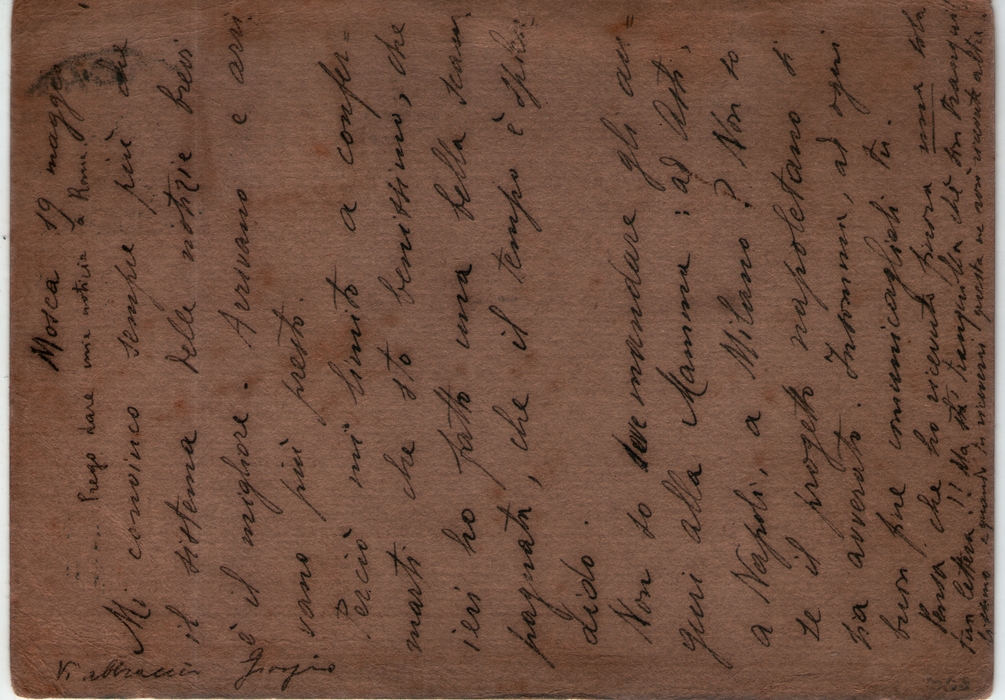 Mosca 19 maggio
Prego dare mie notizie a Roma.
Mi convinco sempre più che
il sistema delle notizie brevi
è il migliore. Arrivano e arri
vano più presto.
Perciò mi limito a confer=
marti che sto benissimo, che
ieri ho fatto una bella scam
pagnata, che il tempo è splen
dido.
Non so mandare gli au=
guri alla Mamma: ad Asti,
a Napoli, a Milano? Non so
se il progetto napoletano si
sia avverato. Insomma, ad ogni
buon fine comunicaglieli tu.
Pensa che ho ricevuto finora una sola
tua lettera!! Ma sta tranquilla ché son tranquil
quando riceverai questa ne avrò ricevute altre.
Vi abbraccio
Giorgio